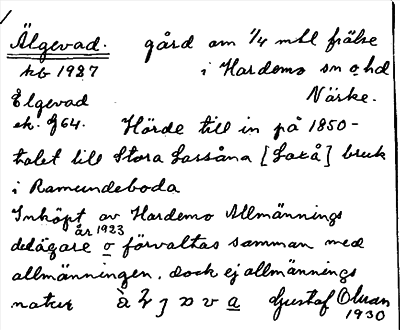 Älgevad. gård om 1/4 mtl frälse
hb 1927 i Hardemo sn o hd
Elgevad Närke.
ek. 964. Hörde till in på 1850-
talet till Stora Lassåna [Laxå] bruk
i Ramundeboda
Inköpt av Hardemo Allmännings
delägare år 1923 o förvaltas samman med
allmänningen, dock ej allmännings
natur
Gustaf Olsson
1930